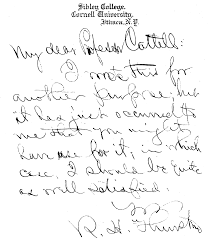 Sibley College.
Cornell University,
Ithaca, N.Y.
My dear Professor Cattell:
I wrote this for
another purpose; but
it has just occurred to
me that you might
have use for it; in which
case, I should be quite
as well satisfied.
R. H. Thurston